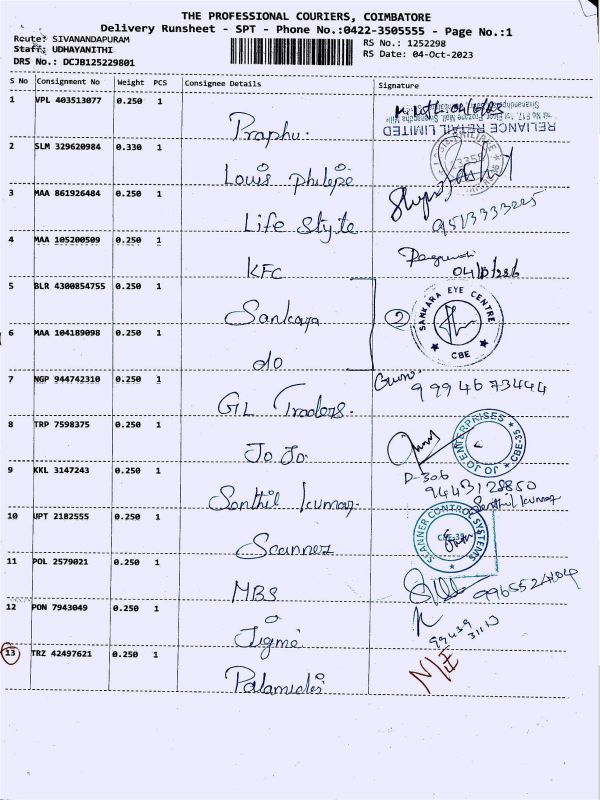 THE PROFESSIONAL COURIERS, COIMBATORE
Delivery Runsheet - SPT - Phone No.:0422-3505555 - Page No.:1
Route: SIVANANDAPURAM
RS No.: 1252298
Staff: UDHAYANITHI
RS Date: 04-Oct-2023
DRS No.: DCJB125229801
S No Consignment No Weight PCS Consignee Details Signature
1 VPL 403513077 0.250 1 Praphu.
RELIANCE RETAIL LIMITED
2 SLM 329620984 0.330 1 Louis philepe
3 MAA 861926484 0.250 1 Life style
9513333225
4 MAA 105200509 0.250 1 KFC
5 BLR 4300854755 0.250 1 Sankara
2 SANKARA EYE CENTRE CBE
6 MAA 104189098 0.250 1 do
7 NGP 944742310 0.250 1 GL Traders.
9994673444
8 TRP 7598375 0.250 1 Jo Jo.
JO JO ENTERPRISES CBE-35
9 KKL 3147243 0.250 1 Senthil kumar.
D-306
9443128850
Senthil kumar
10 JPT 2182555 0.250 1 Scanner
SCANNER CONTROL SYSTEMS
11 POL 2579021 0.250 1 MBS
9965524104
12 PON 7943049 0.250 1 Jigme
13 TRZ 42497621 0.250 1